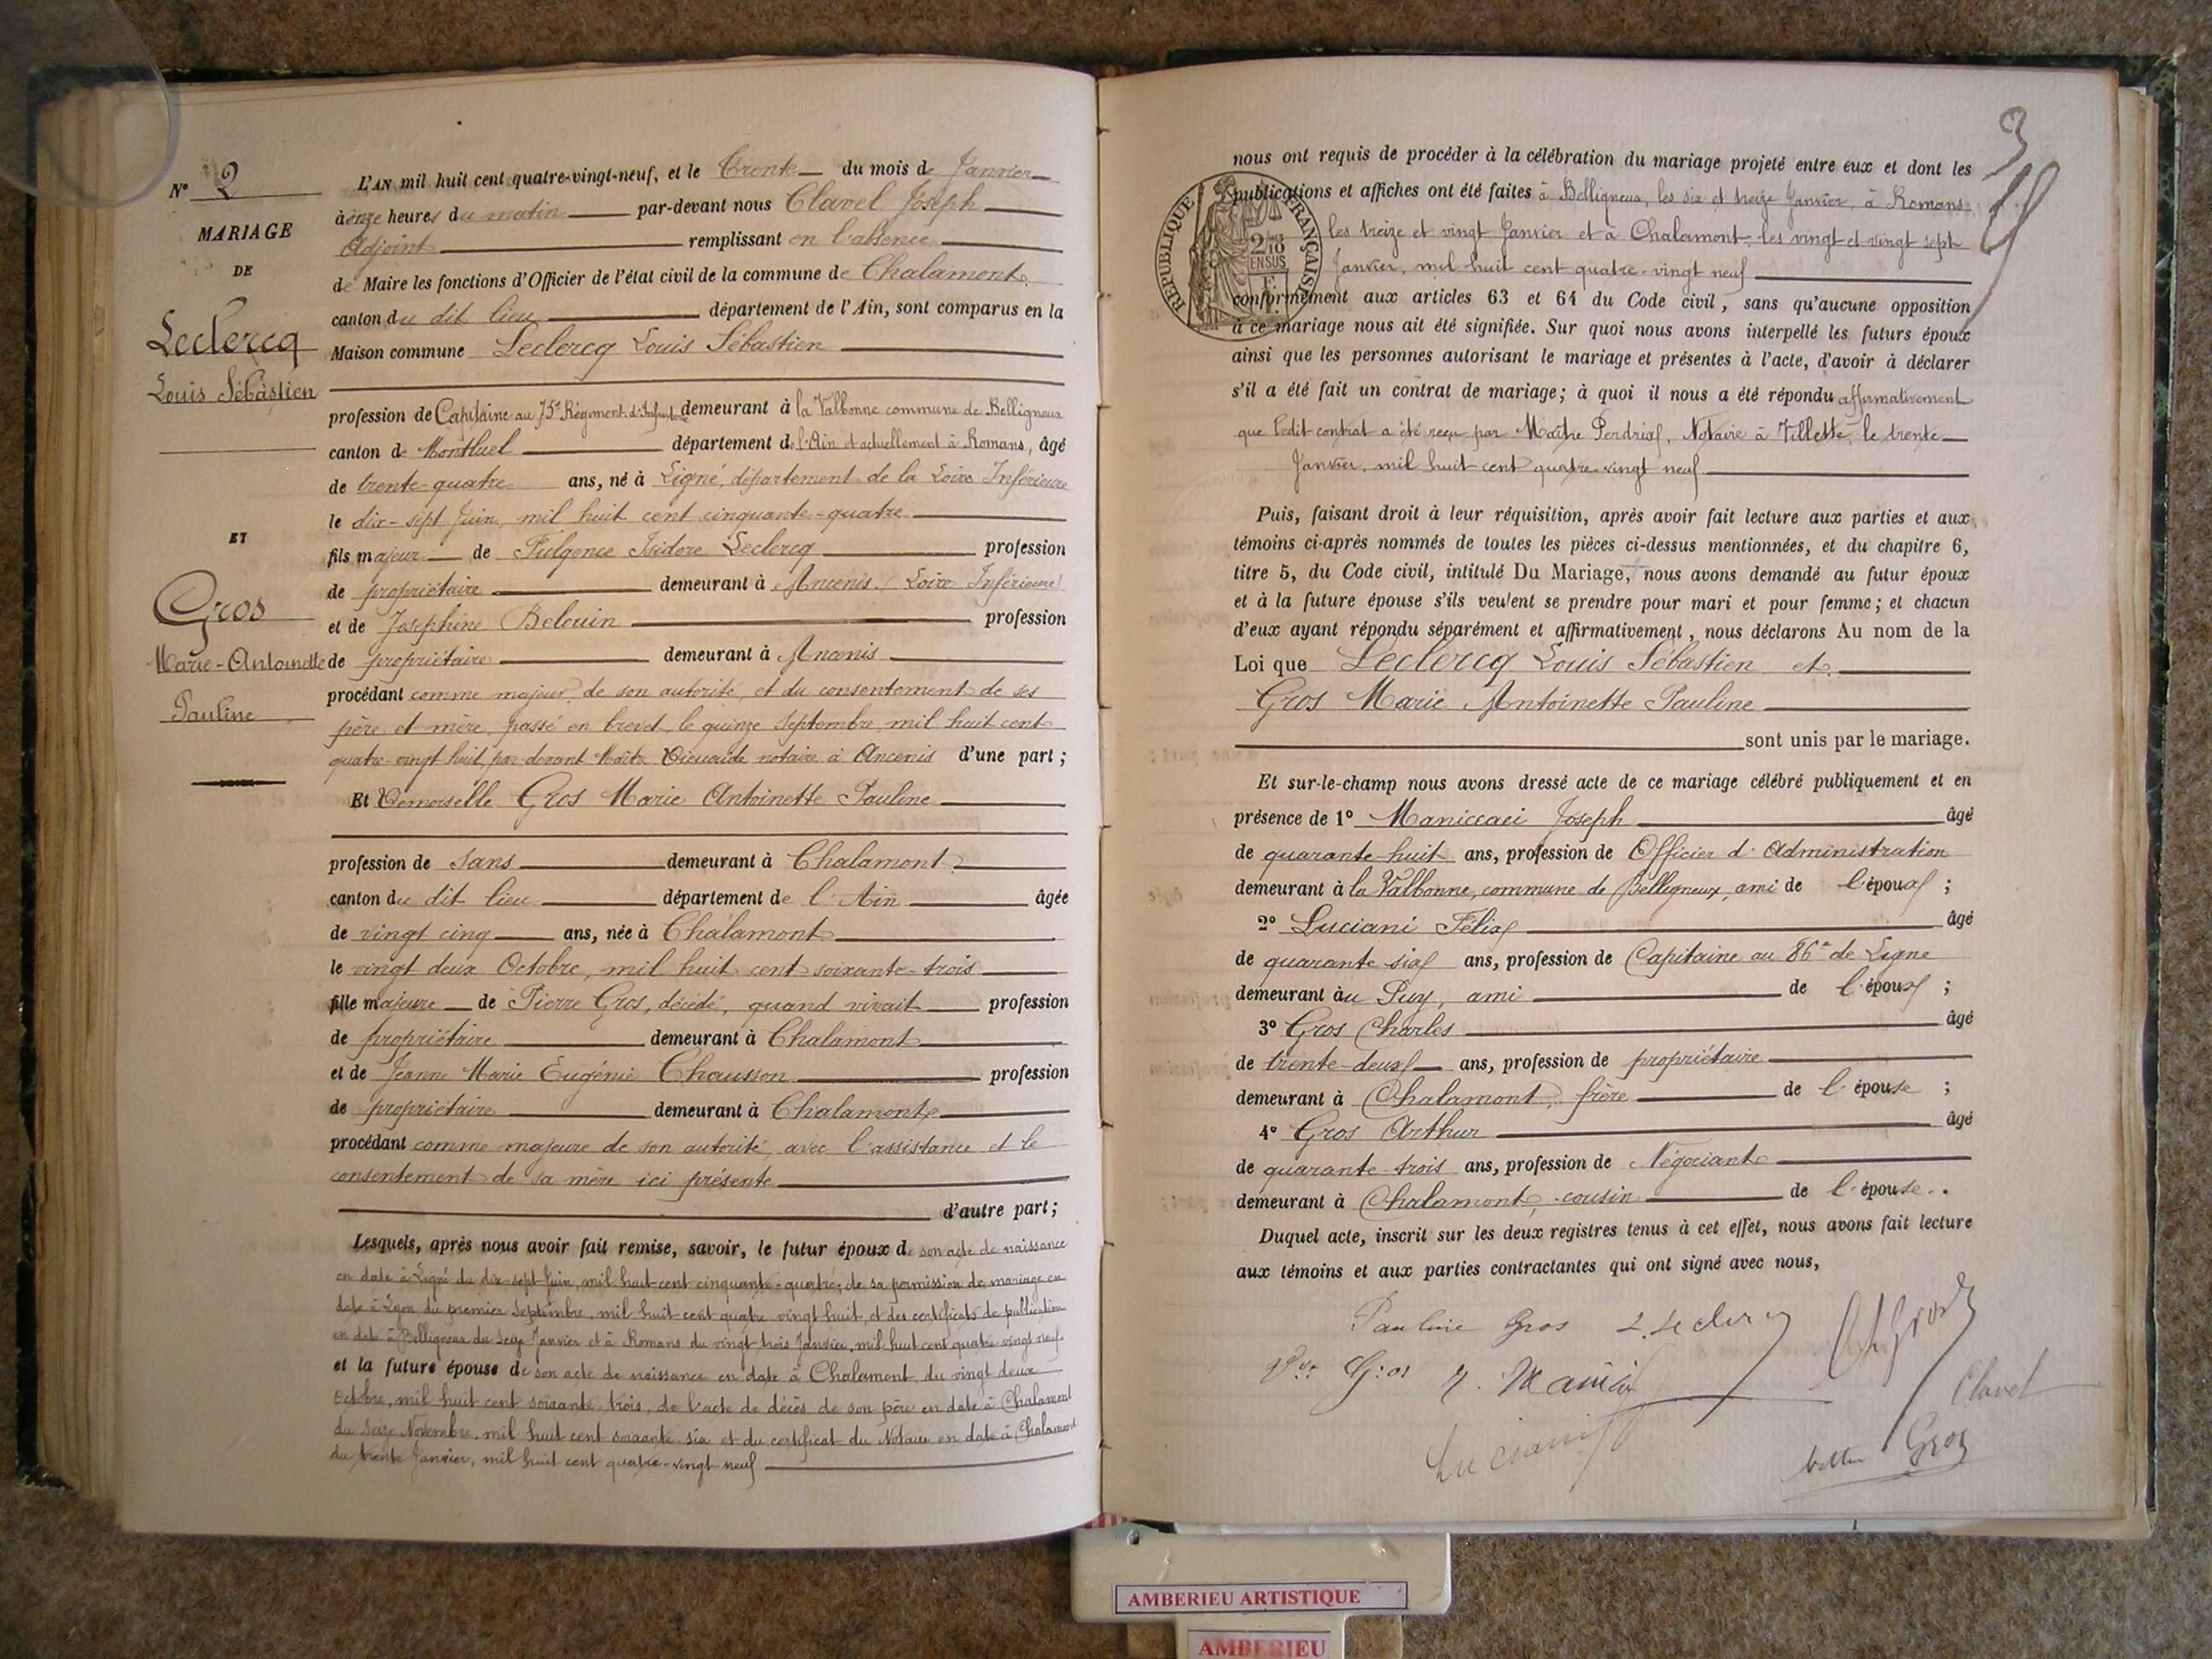 N° 2
MARIAGE
DE
Leclercq
Louis Sébastien
ET
Gros
Marie-Antoinette
Pauline
L'AN mil huit cent quatre-vingt-neuf, et le Trente du mois de Janvier
à onze heures du matin par-devant nous Clavel Joseph
Adjoint remplissant en l'absence
de Maire les fonctions d'Officier de l'état civil de la commune de Chalamont
canton du dit lieu département de l'Ain, sont comparus en la
Maison commune Leclercq Louis Sébastien
profession de Capitaine au 75e Régiment d'Infanterie demeurant à la Valbonne commune de Belligneux
canton de Montluel département de l'Ain et actuellement à Romans, âgé
de trente-quatre ans, né à Ligné, département de la Loire Inférieure
le dix-sept Juin, mil huit cent cinquante-quatre
fils majeur de Fulgence Isidore Leclercq profession
de propriétaire demeurant à Ancenis (Loire Inférieure)
et de Joséphine Belouin profession
de propriétaire demeurant à Ancenis
procédant comme majeur de son autorité, et du consentement de ses
père et mère, passé en brevet, le quinze Septembre, mil huit cent
quatre-vingt huit, par devant Maître notaire à Ancenis d'une part ;
Et Demoiselle Gros Marie Antoinette Pauline
profession de Sans demeurant à Chalamont
canton du dit lieu département de l'Ain âgée
de vingt cinq ans, née à Chalamont
le vingt deux Octobre, mil huit cent soixante-trois
fille majeure de Pierre Gros, décédé, quand vivait profession
de propriétaire demeurant à Chalamont
et de Jeanne Marie Eugénie Chausson profession
de propriétaire demeurant à Chalamont
procédant comme majeure de son autorité, avec l'assistance et le
consentement de sa mère ici présente
d'autre part ;
Lesquels, après nous avoir fait remise, savoir, le futur époux de son acte de naissance
en date à Ligné du dix-sept Juin, mil huit cent cinquante-quatre, de sa permission de mariage en
date à Lyon du premier Septembre, mil huit cent quatre vingt huit, et des certificats de publication
en date à Belligneux du Seize Janvier et à Romans du vingt trois Janvier, mil huit cent quatre vingt neuf
et la future épouse de son acte de naissance en date à Chalamont, du vingt deux
Octobre, mil huit cent soixante-trois, de l'acte de décès de son père en date à Chalamont
du Seize Novembre, mil huit cent soixante-six et du certificat du Notaire en date à Chalamont
du trente Janvier, mil huit cent quatre-vingt neuf
3
RÉPUBLIQUE FRANÇAISE
2/10 EN SUS
nous ont requis de procéder à la célébration du mariage projeté entre eux et dont les
publications et affiches ont été faites à Belligneux, les six et treize Janvier, à Romans
les treize et vingt Janvier et à Chalamont, les vingt et vingt sept
Janvier, mil huit cent quatre-vingt neuf
conformément aux articles 63 et 64 du Code civil, sans qu'aucune opposition
à ce mariage nous ait été signifiée. Sur quoi nous avons interpellé les futurs époux
ainsi que les personnes autorisant le mariage et présentes à l'acte, d'avoir à déclarer
s'il a été fait un contrat de mariage ; à quoi il nous a été répondu affirmativement
que ledit contrat a été reçu par Maître Perdrix, Notaire à Villette, le trente
Janvier, mil huit cent quatre vingt neuf
Puis, faisant droit à leur réquisition, après avoir fait lecture aux parties et aux
témoins ci-après nommés de toutes les pièces ci-dessus mentionnées, et du chapitre 6,
titre 5, du Code civil, intitulé Du Mariage, nous avons demandé au futur époux
et à la future épouse s'ils veulent se prendre pour mari et pour femme ; et chacun
d'eux ayant répondu séparément et affirmativement, nous déclarons Au nom de la
Loi que Leclercq Louis Sébastien et
Gros Marie Antoinette Pauline
sont unis par le mariage.
Et sur-le-champ nous avons dressé acte de ce mariage célébré publiquement et en
présence de 1° Maniccaci Joseph âgé
de quarante-huit ans, profession de Officier d'Administration
demeurant à la Valbonne, commune de Belligneux, ami de l'époux ;
2° Luciani Félix âgé
de quarante six ans, profession de Capitaine au 86e de Ligne
demeurant au Puy, ami de l'époux ;
3° Gros Charles âgé
de trente-deux ans, profession de propriétaire
demeurant à Chalamont, frère de l'épouse ;
4° Gros Arthur âgé
de quarante-trois ans, profession de Négociant
demeurant à Chalamont, cousin de l'épouse.
Duquel acte, inscrit sur les deux registres tenus à cet effet, nous avons fait lecture
aux témoins et aux parties contractantes qui ont signé avec nous,
Pauline Gros L. Leclercq Ch Gros
Vve Gros
Clavel
Luciani
Gros
AMBERIEU ARTISTIQUE
AMBERIEU